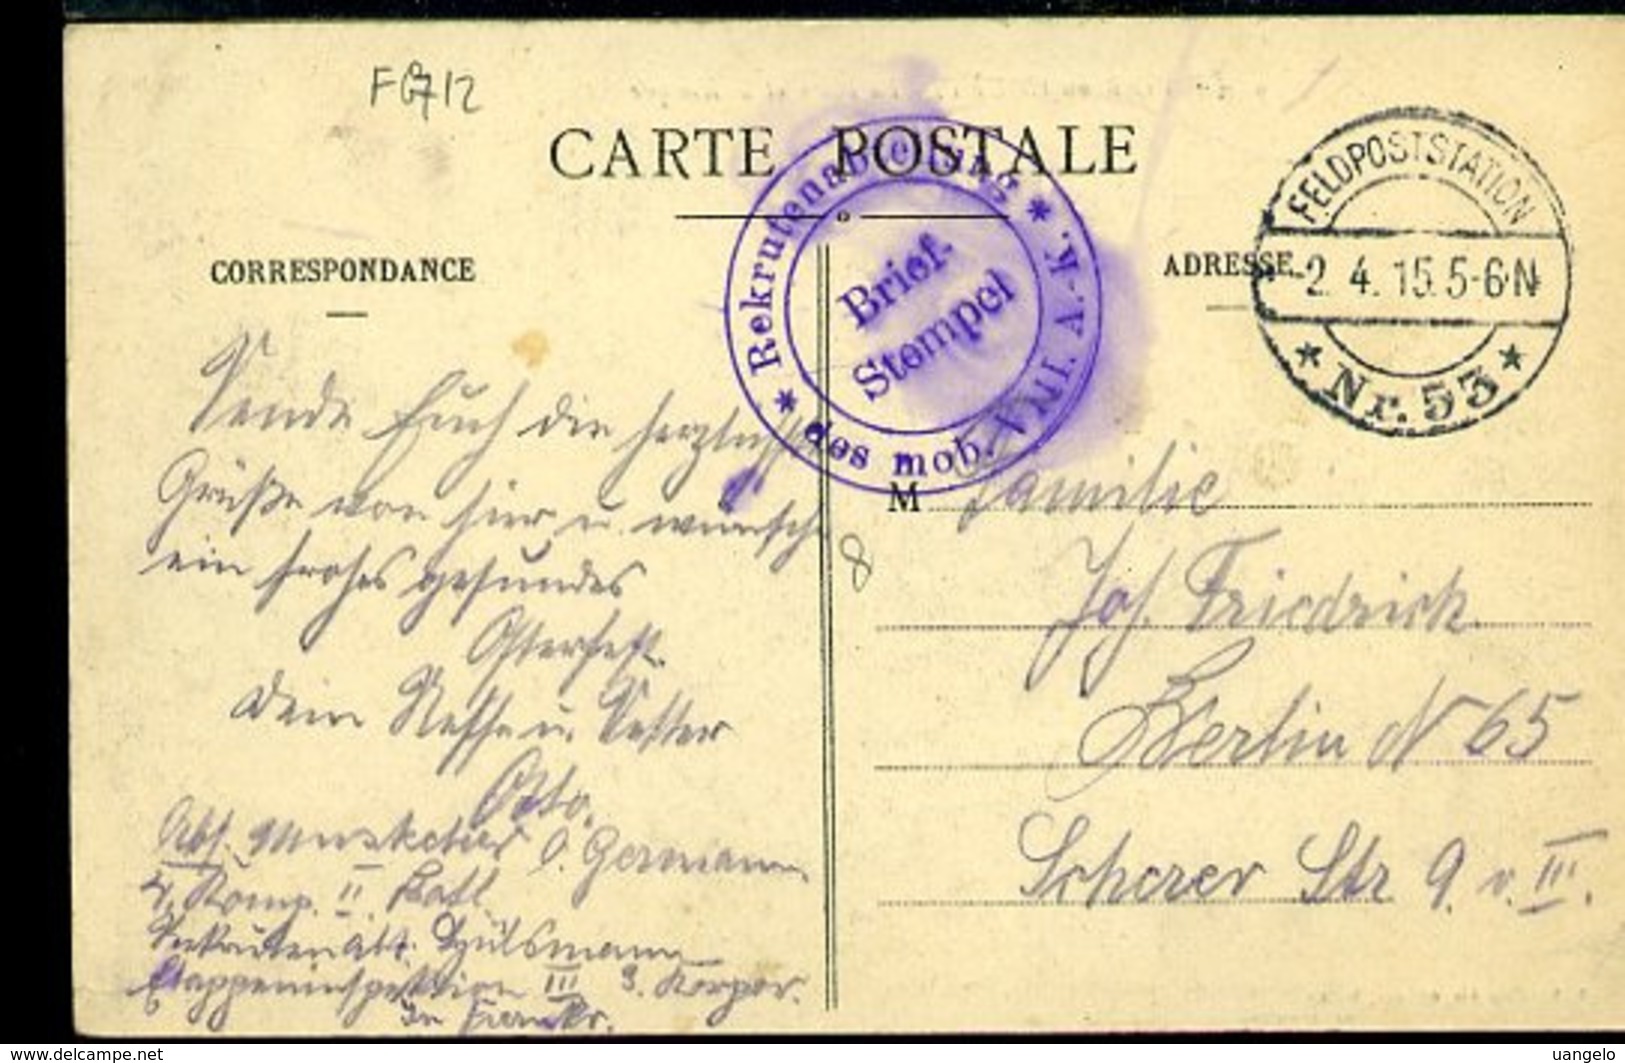 FG712
CARTE POSTALE
CORRESPONDANCE
ADRESSE
* Rekrutenabteilung * des mob. VIII. A.-K.
Brief-
Stempel
FELDPOSTSTATION
-2. 4. 15. 5-6 N
* Nr. 53 *
Sende Euch die herzlichsten
Grüße von hier u. wünsche
ein frohes gesundes
Osterfest.
Dein Neffe u. Vetter
Otto.
Abs. Musketier O. Germann
4. Komp. II. Batl
Rekruten Abt. Hülsmann
Etappeninspektion III 3. Korpor.
In Frankr.
8
M Familie
Joh. Friedrich
Berlin N 65
Scherer Str 9 v. III.
delcampe.net
uangelo